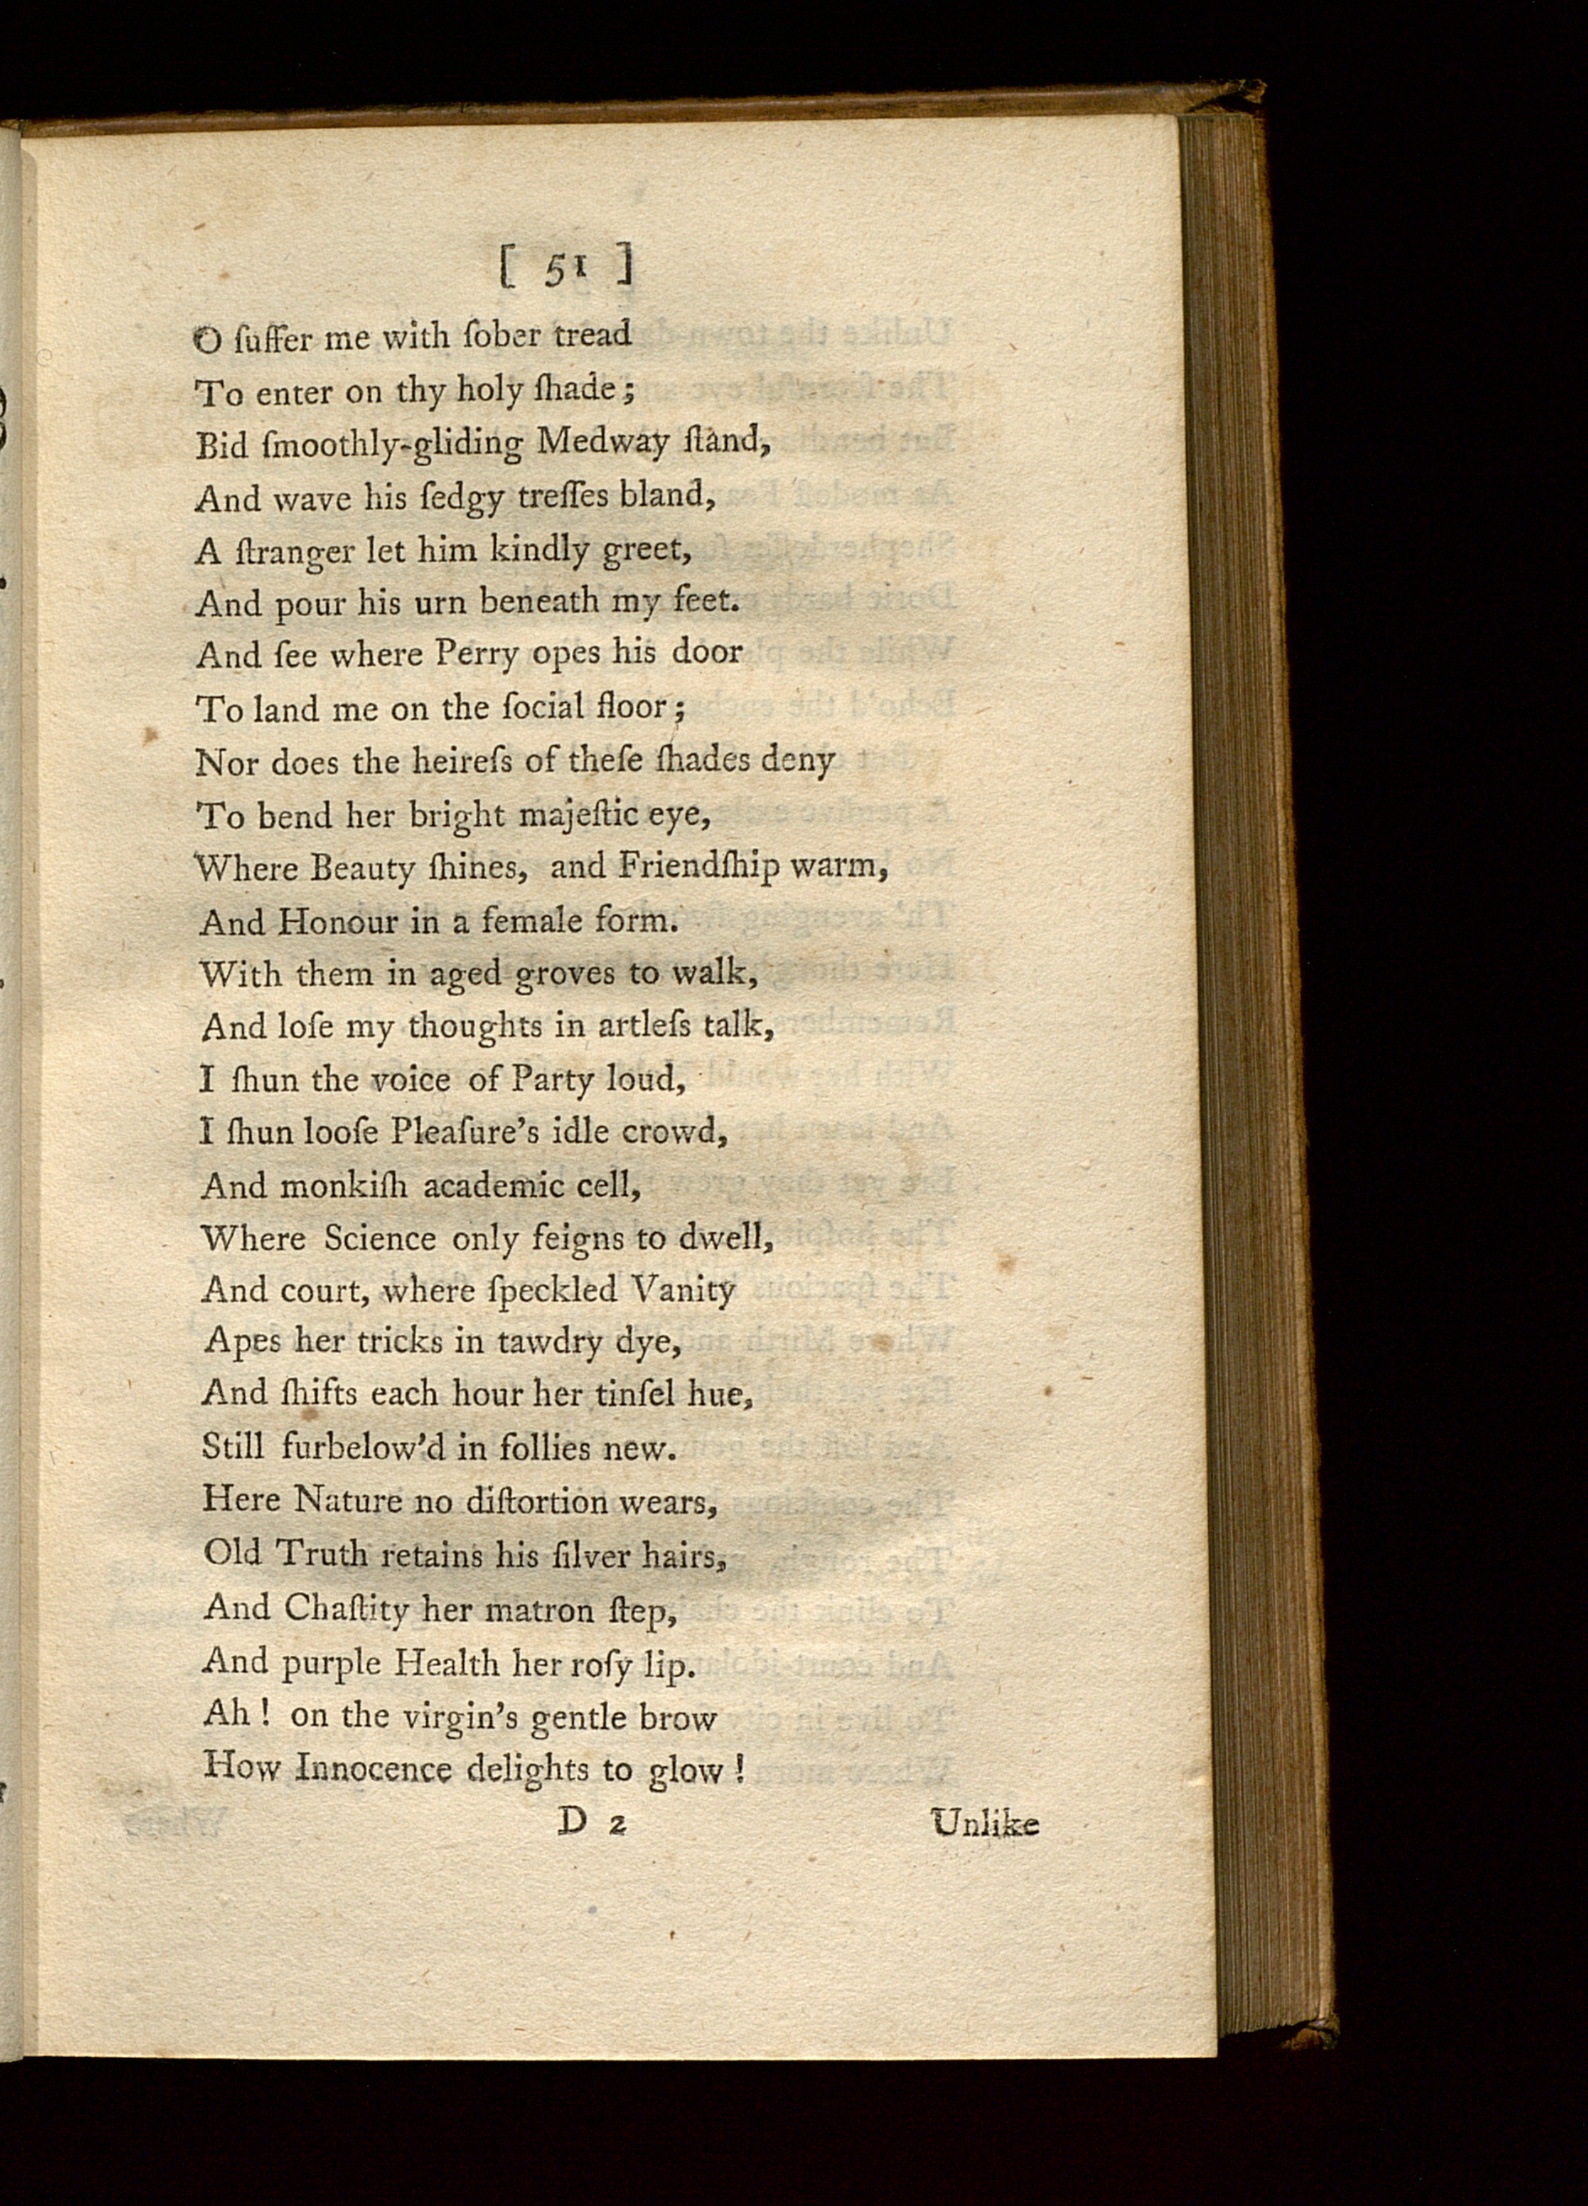 [ 51 ]
O ſuffer me with ſober tread
To enter on thy holy ſhade;
Bid ſmoothly-gliding Medway ſtand,
And wave his ſedgy treſſes bland,
A ſtranger let him kindly greet,
And pour his urn beneath my feet.
And ſee where Perry opes his door
To land me on the ſocial floor;
Nor does the heireſs of theſe ſhades deny
To bend her bright majeſtic eye,
Where Beauty ſhines, and Friendſhip warm,
And Honour in a female form.
With them in aged groves to walk,
And loſe my thoughts in artleſs talk,
I ſhun the voice of Party loud,
I ſhun looſe Pleaſure's idle crowd,
And monkiſh academic cell,
Where Science only feigns to dwell,
And court, where ſpeckled Vanity
Apes her tricks in tawdry dye,
And ſhifts each hour her tinſel hue,
Still furbelow'd in follies new.
Here Nature no diſtortion wears,
Old Truth retains his ſilver hairs,
And Chaſtity her matron ſtep,
And purple Health her roſy lip.
Ah! on the virgin's gentle brow
How Innocence delights to glow!
D 2 Unlike